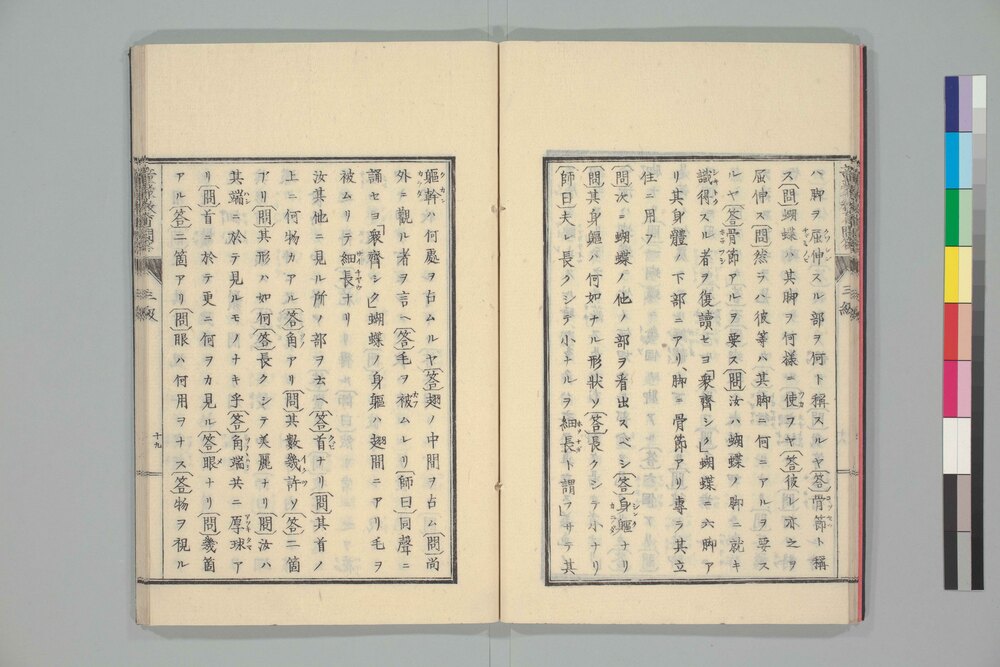 ハ脚ヲ屈伸スル部ヲ何ト稱スルヤ〔答〕骨節ト稱
ス〔問〕蝴蝶ハ其脚ヲ何樣ニ使フヤ〔答〕彼レ亦之ヲ
屈伸ス〔問〕然ラバ彼等ハ其脚ニ何ニアルヲ要ス
ルヤ〔答〕骨節アルヲ要ス〔問〕汝ハ蝴蝶ノ脚ニ就キ
識得スル者ヲ復讀セヨ「衆齊シク」蝴蝶ニ六脚ア
リ其身體ノ下部ニアリ、脚ニ骨節アリ專ラ其立
住ニ用フ
〔問〕次ニ蝴蝶ノ他ノ部ヲ着出スベシ〔答〕身軀ナリ
〔問〕其身軀ハ何如ナル形狀ゾ〔答〕長クシテ小ナリ
〔師曰〕夫レ長クシテ小ナルヲ細長ト謂フ」サテ其
軀幹ハ何處ヲ占ムルヤ〔答〕翅ノ中間ヲ占ム〔問〕尚
外ニ觀ル者ヲ言ヘ〔答〕毛ヲ被ムレリ〔師曰〕同聲ニ
誦セヨ「衆齊シク」蝴蝶ノ身軀ハ翅間ニアリ毛ヲ
被ムリテ細長ナリ
汝其他ニ見ル所ノ部ヲ云ヘ〔答〕首ナリ〔問〕其首ノ
上ニ何物カアル〔答〕角アリ〔問〕其數幾許ゾ〔答〕二箇
アリ〔問〕其形ハ如何〔答〕長クシテ美麗ナリ〔問〕汝ハ
其端ニ於テ見ルモノナキ乎〔答〕角端共ニ厚球ア
リ〔問〕首ニ於テ更ニ何ヲカ見ル〔答〕眼ナリ〔問〕幾箇
アル〔答〕二箇アリ〔問〕眼ハ何用ヲナス〔答〕物ヲ視ル
三級
十九